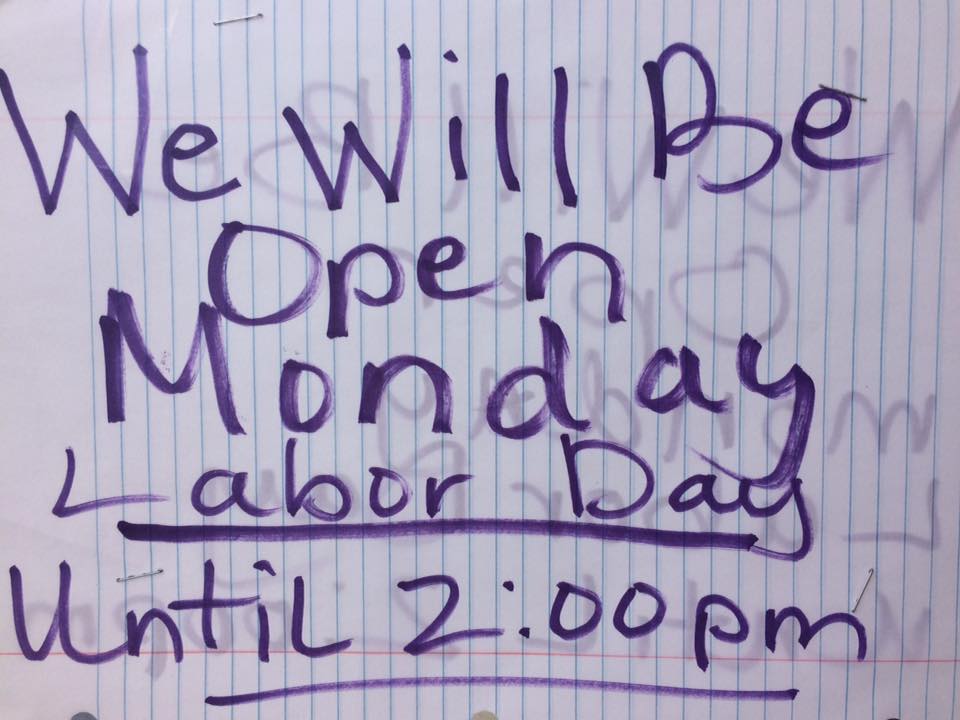 We Will Be
Open
Monday
Labor Day
Until 2:00pm